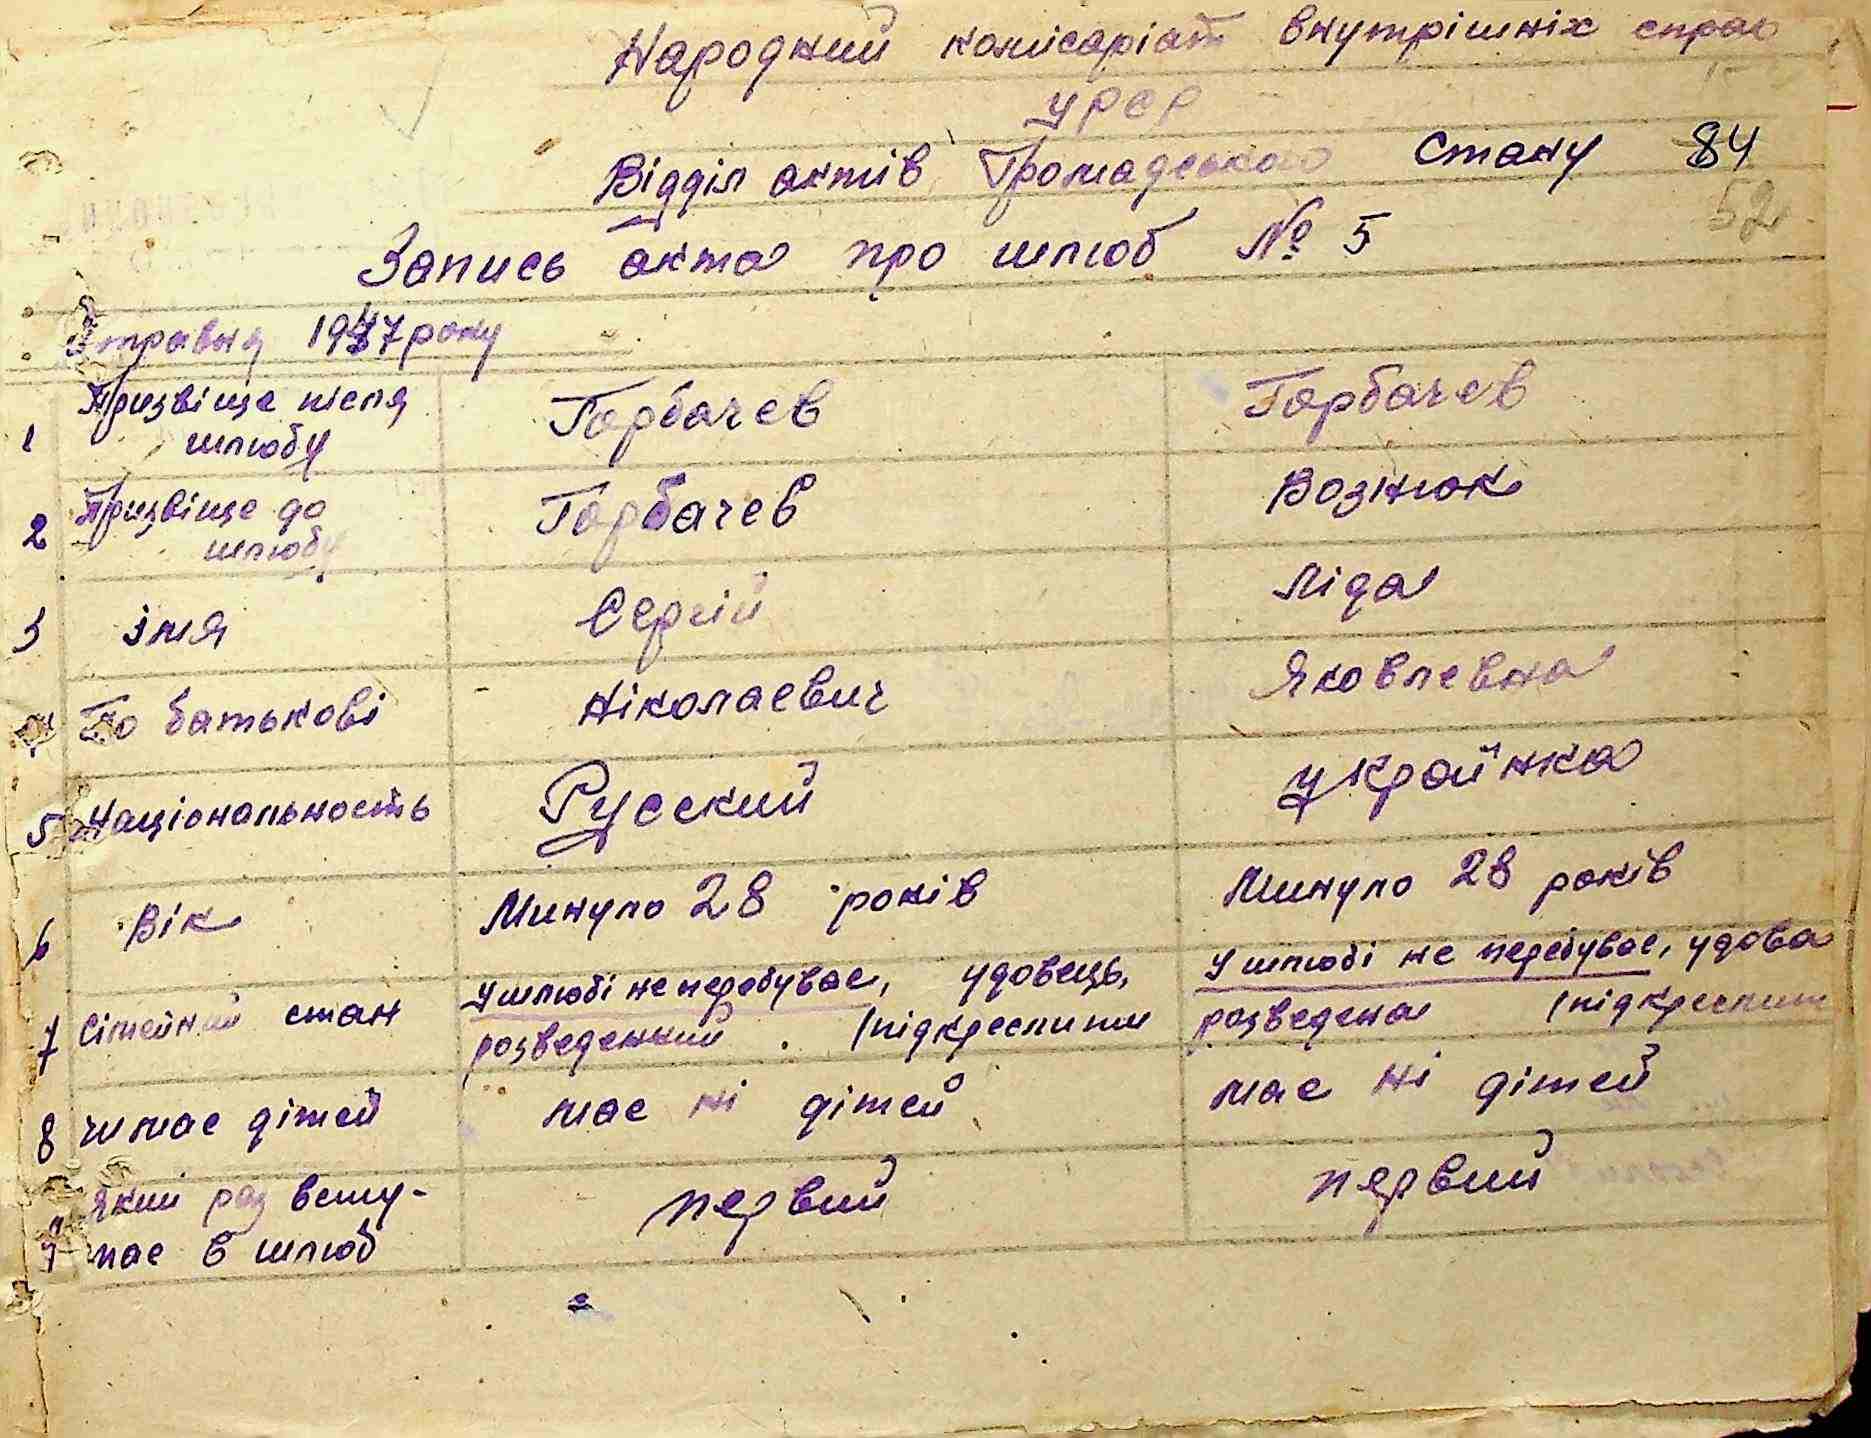 Народний комісаріат внутрішніх справ
УРСР
Відділ актів Громадського стану 84
52
Запись акта про шлюб № 5
травня 1947 року
1 Призвіще після Горбачев Горбачев
шлюбу
2 Призвіще до Горбачев Вознюк
шлюбу
3 імя Сергій Ліда
4 По батькові Ніколаевич Яковлевна
5 Національность Русский Украйнка
6 Вік Минуло 28 років Минуло 28 років
7 Сімейний стан У шлюбі не перебувае, удовець, У шлюбі не перебувае, удова
розведенний (підкреслити розведена (підкреслит
8 чи мае дітей мае ні дітей мае ні дітей
9 Який раз всту- первий первий
пае в шлюб